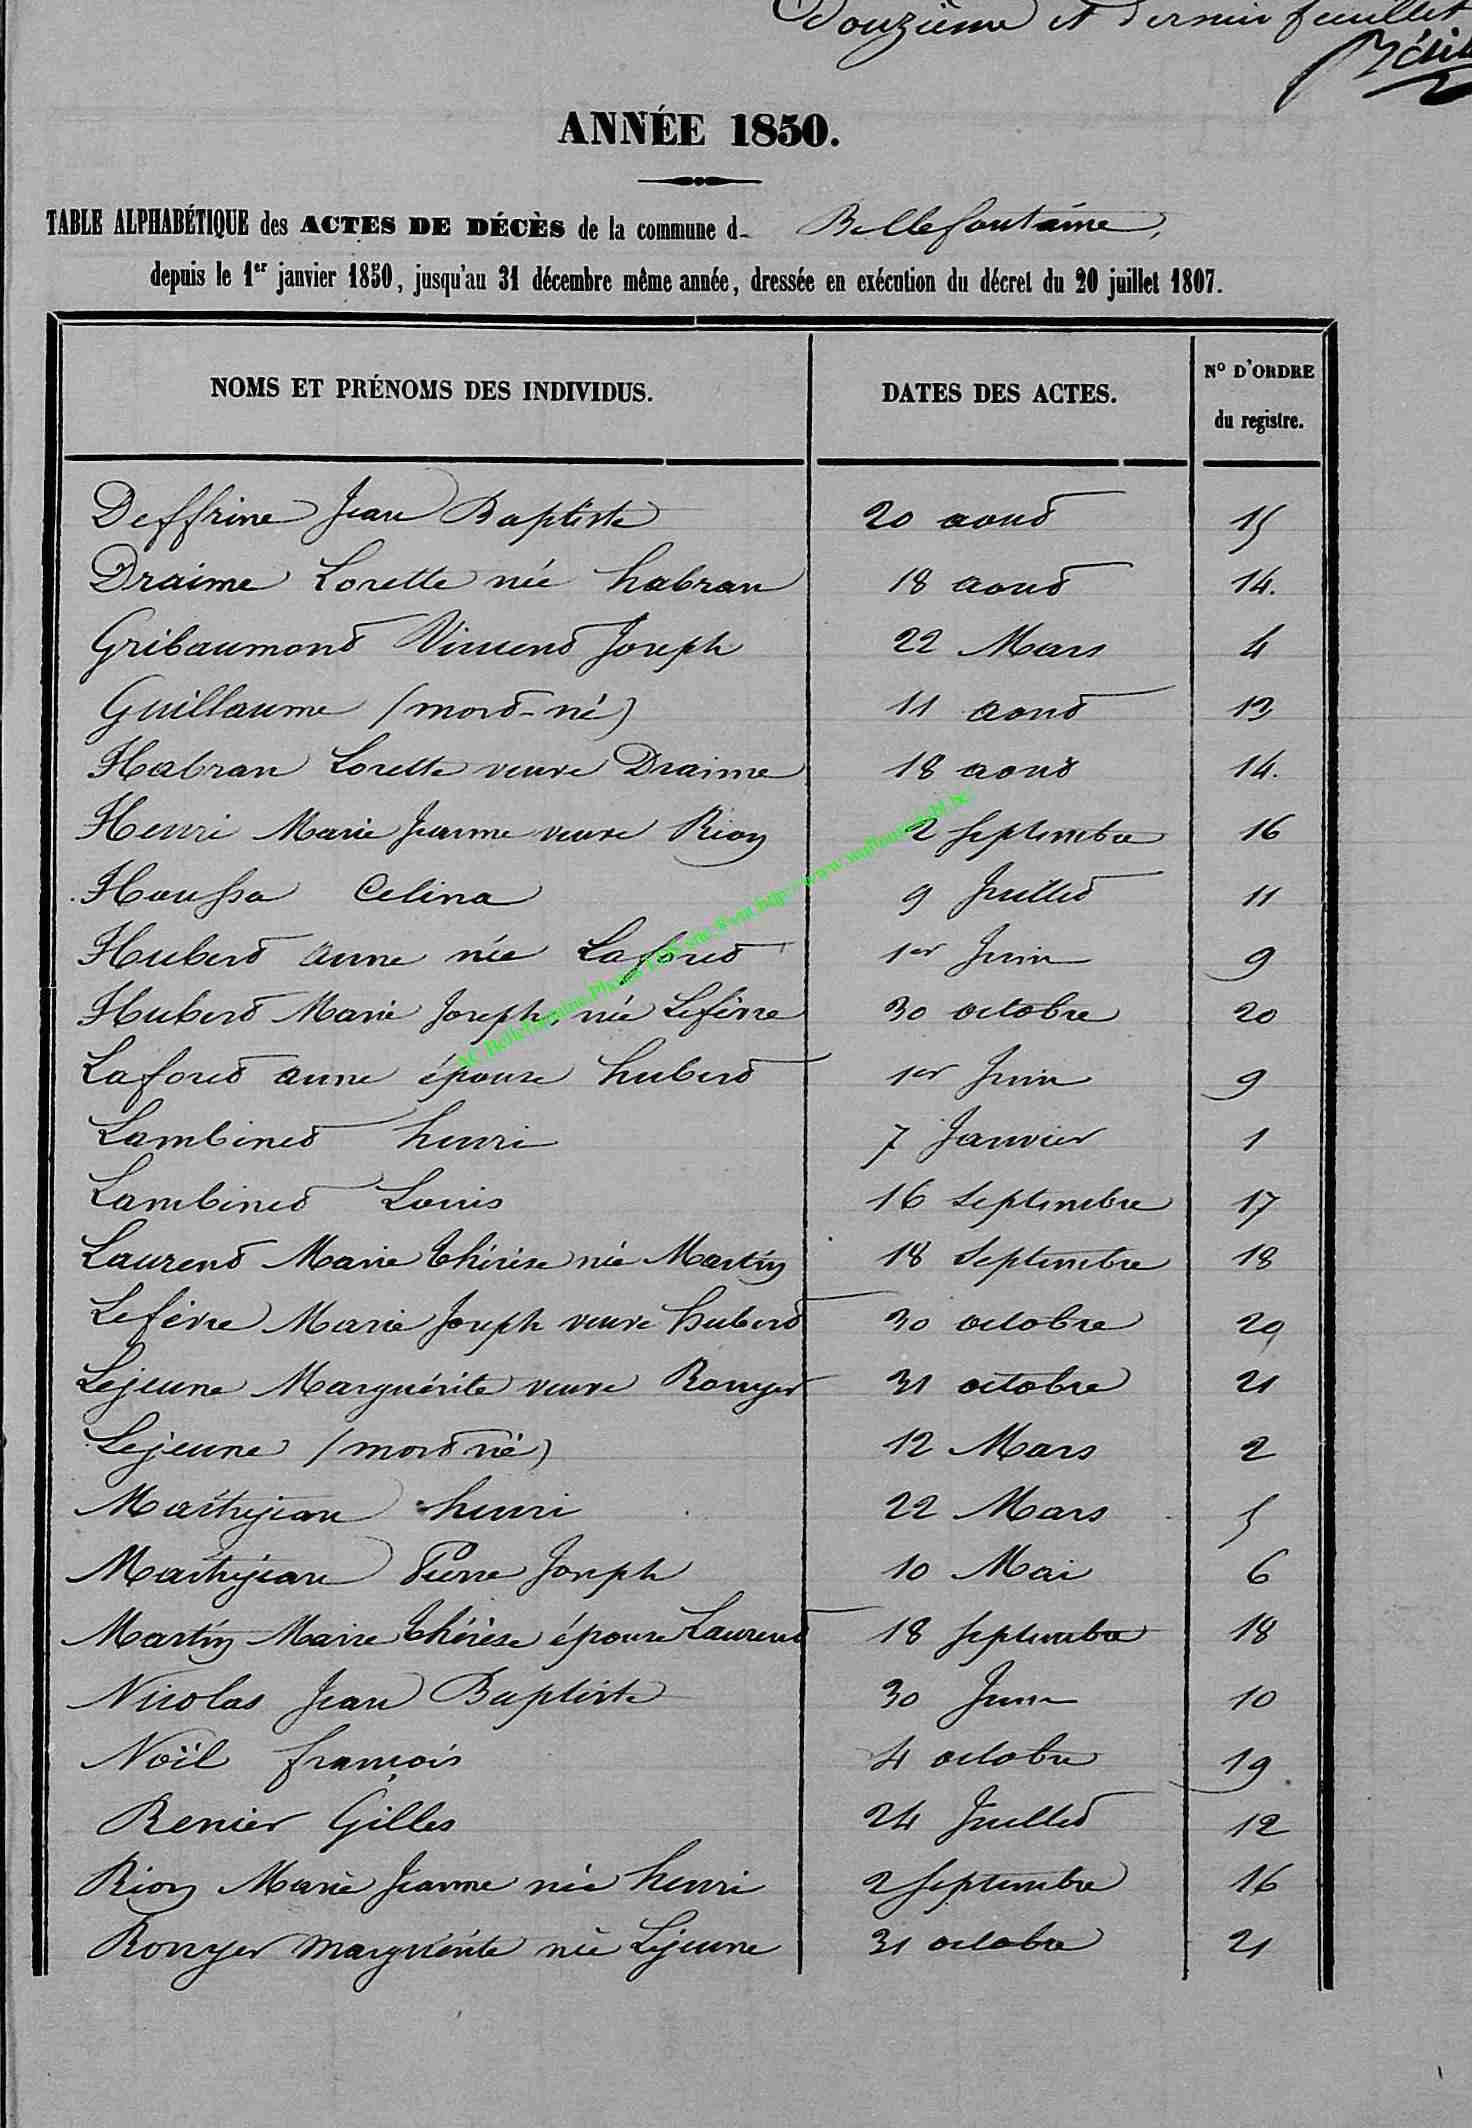 Douzième et dernier feuillet
ANNÉE 1850.
TABLE ALPHABÉTIQUE des ACTES DE DÉCÈS de la commune d- Bellefontaine,
depuis le 1er janvier 1850, jusqu'au 31 décembre même année, dressée en exécution du décret du 20 juillet 1807.
NOMS ET PRÉNOMS DES INDIVIDUS. DATES DES ACTES. No D'ORDRE du registre.
Deffrine Jean Baptiste 20 aout 15
Draime Lorette née habran 18 aout 14.
Gribaumont Vincent Joseph 22 Mars 4
Guillaume (mort-né) 11 aout 13
Habran Lorette veuve Draime 18 aout 14.
Henri Marie Jeanne veuve Rion 2 septembre 16
Houssa Celina 9 Juillet 11
Hubert anne née Laforet 1er Juin 9
Hubert Marie Joseph née Lefèvre 30 octobre 20
Laforet anne épouse hubert 1er Juin 9
Lambinet henri 7 Janvier 1
Lambinet Louis 16 septembre 17
Laurent Marie thérèse née Martin 18 septembre 18
Lefèvre Marie Joseph veuve hubert 30 octobre 20
Lejeune Marguérite veuve Ronyer 31 octobre 21
Lejeune (mort né) 12 Mars 2
Maithéjean henri 22 Mars 5
Maithéjean Pierre Joseph 10 Mai 6
Martin Marie thérèse épouse Laurent 18 septembre 18
Nicolas Jean Baptiste 30 Juin 10
Noël françois 4 octobre 19
Renier Gilles 24 Juillet 12
Rion Marie Jeanne née henri 2 septembre 16
Ronyer marguérite née Lejeune 31 octobre 21